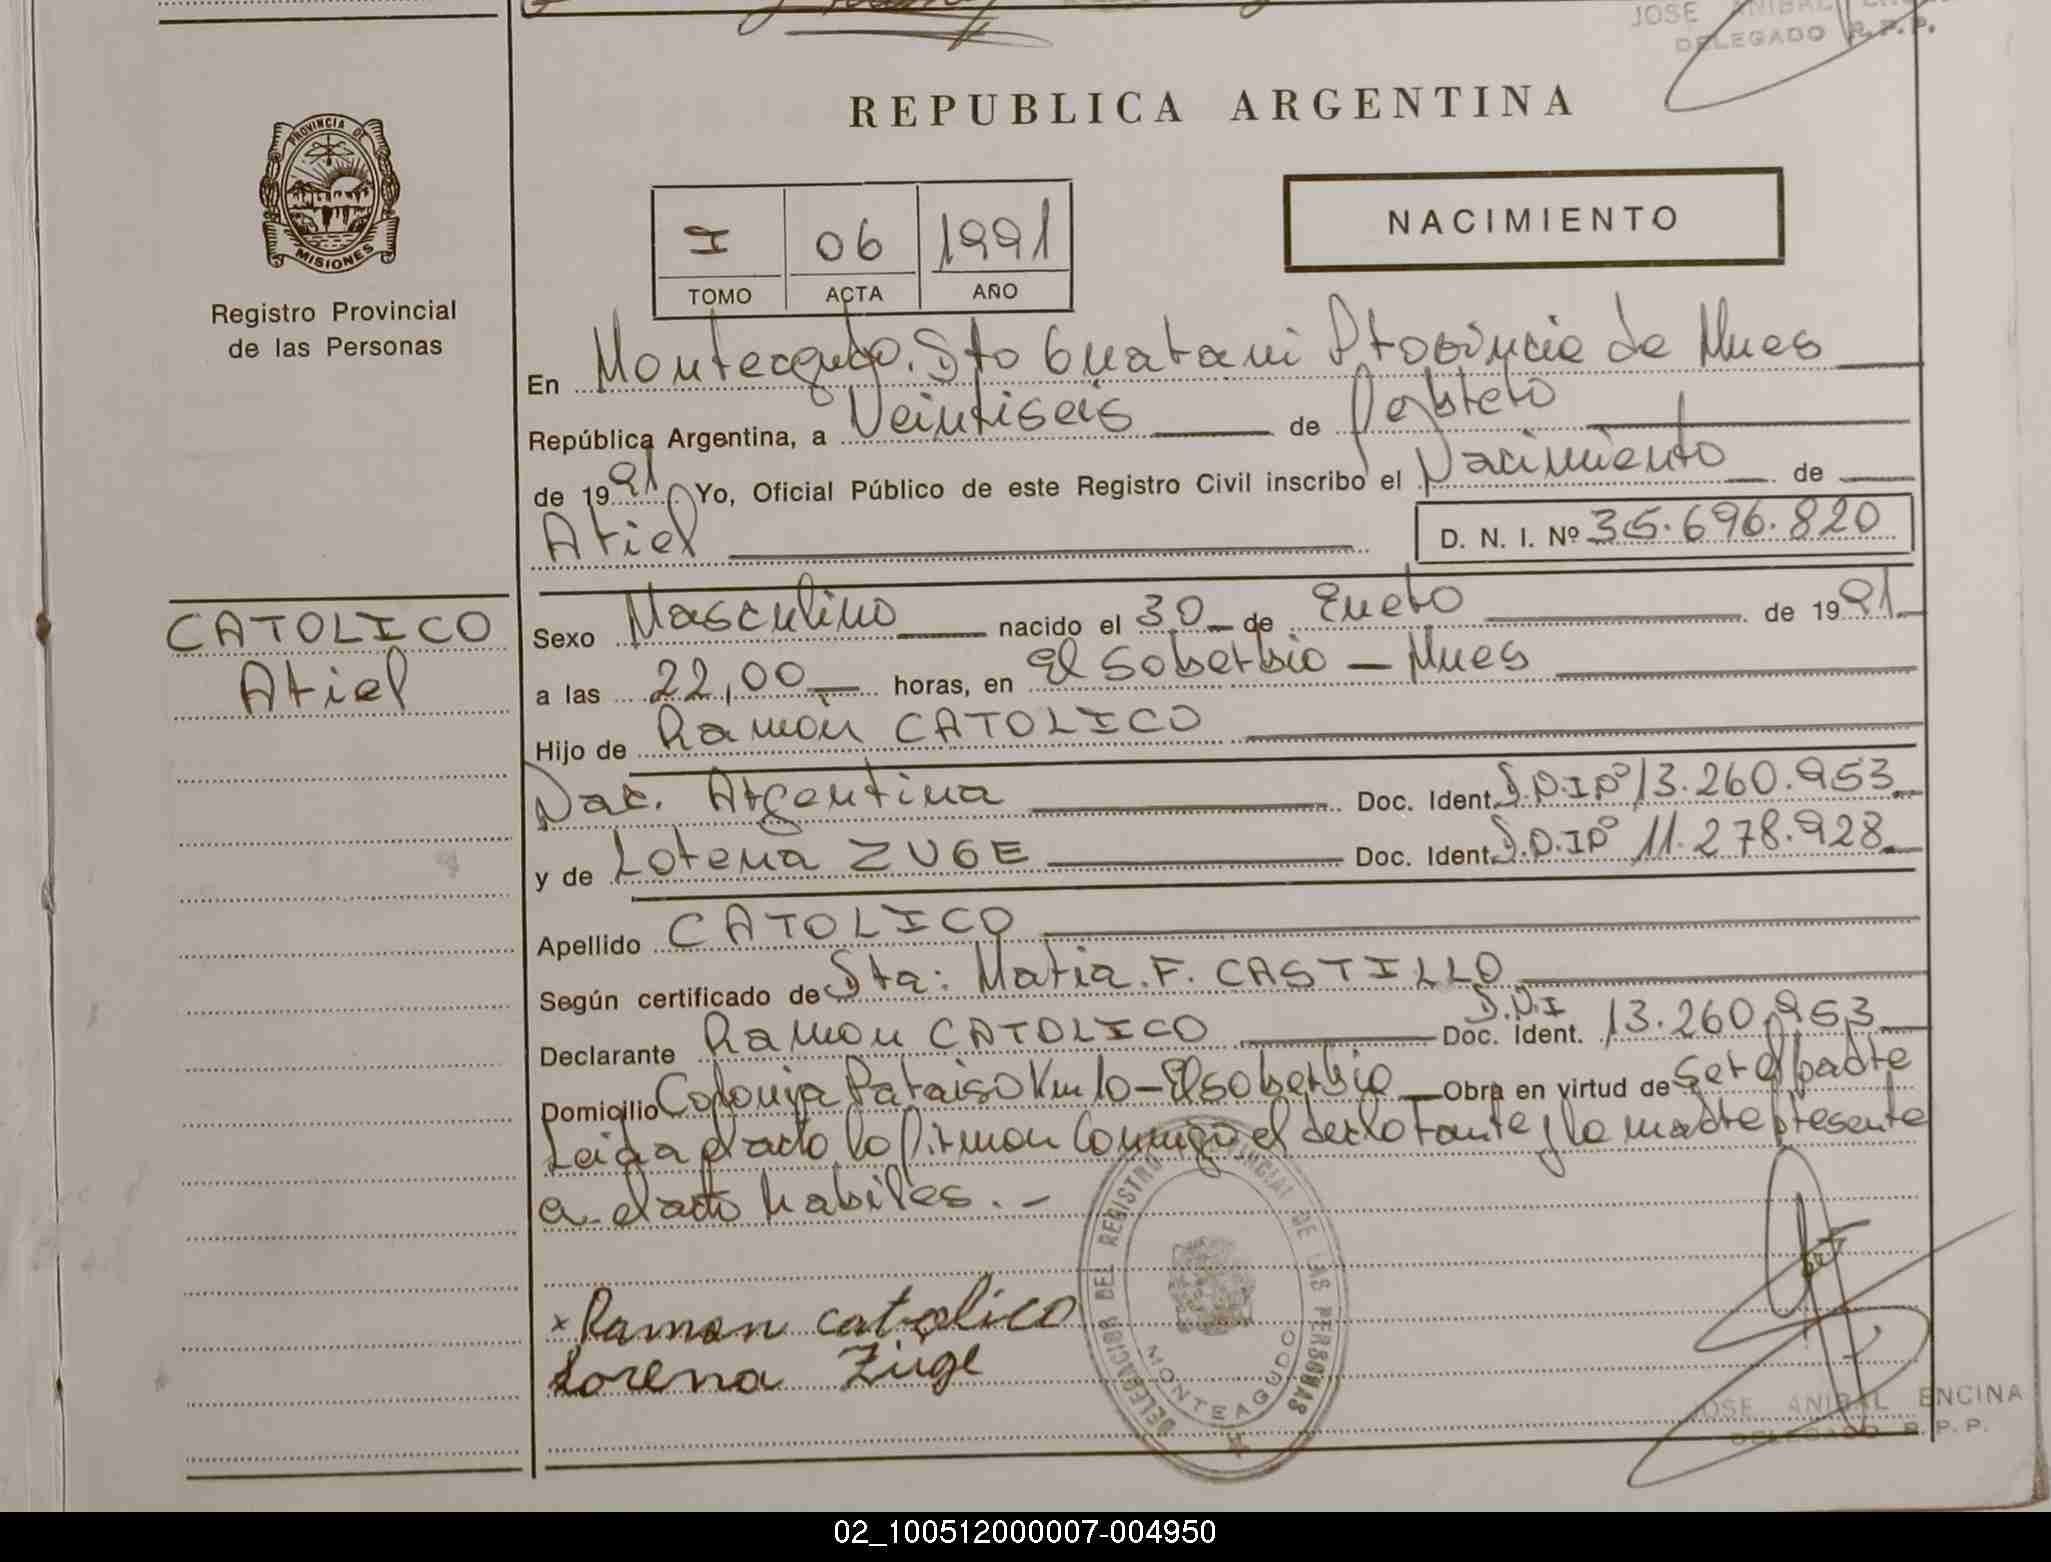 JOSE ANIBAL
DELEGADO R.P.P.
REPUBLICA ARGENTINA
PROVINCIA DE
MISIONES
Registro Provincial
de las Personas
I 06 1991
TOMO ACTA AÑO
NACIMIENTO
En Monteagudo. Dto Guarani Provincia de Mnes
República Argentina, a Veintiseis de Agosto
de 1991 Yo, Oficial Público de este Registro Civil inscribo el Nacimiento de
Ariel D. N. I. Nº 35.696.820
CATOLICO
Ariel
Sexo Masculino nacido el 30 de Enero de 1991
a las 22,00 horas, en El Soberbio - Mnes
Hijo de Ramón CATOLICO
Nac. Argentina Doc. Ident. D.N.I Nº 13.260.953
y de Lorena ZUGE Doc. Ident. D.N.I Nº 11.278.928
Apellido CATOLICO
Según certificado de Sta: Maria. F. CASTILLO
Declarante Ramon CATOLICO Doc. Ident. D.N.I 13.260.953
Domicilio Colonia Paraiso Km 10 - El soberbio Obra en virtud de Ser el padre
Leida el acta la firman Conmigo el declarante y la madre presente
a el acto habiles. -
x Ramon catolico
Lorena Züge
DELEGACION DEL REGISTRO PROVINCIAL DE LAS PERSONAS
MONTEAGUDO
JOSE ANIBAL ENCINA
DELEGADO R.P.P.
02_100512000007-004950